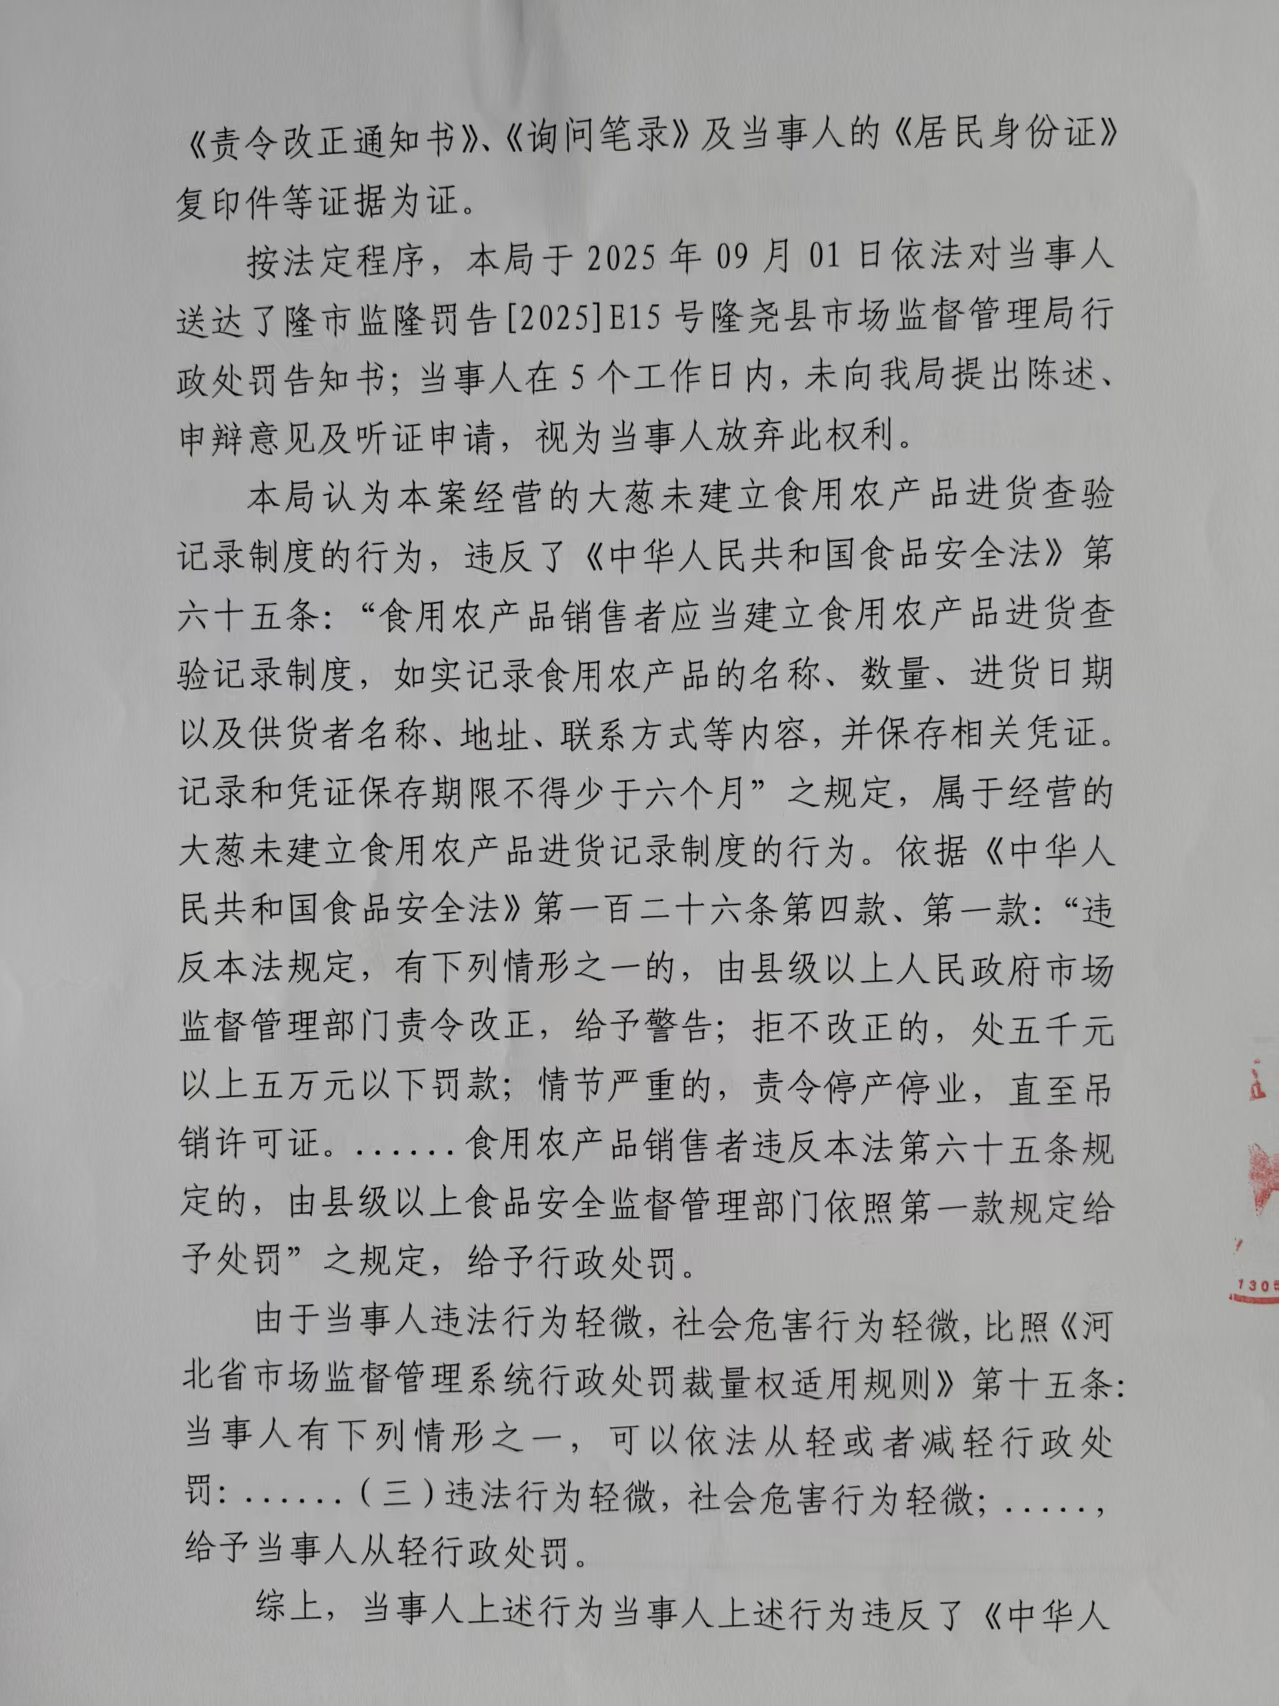 《责令改正通知书》、《询问笔录》及当事人的《居民身份证》
复印件等证据为证。
按法定程序，本局于 2025 年 09 月 01 日依法对当事人
送达了隆市监隆罚告[2025]E15 号隆尧县市场监督管理局行
政处罚告知书；当事人在 5 个工作日内，未向我局提出陈述、
申辩意见及听证申请，视为当事人放弃此权利。
本局认为本案经营的大葱未建立食用农产品进货查验
记录制度的行为，违反了《中华人民共和国食品安全法》第
六十五条：“食用农产品销售者应当建立食用农产品进货查
验记录制度，如实记录食用农产品的名称、数量、进货日期
以及供货者名称、地址、联系方式等内容，并保存相关凭证。
记录和凭证保存期限不得少于六个月”之规定，属于经营的
大葱未建立食用农产品进货记录制度的行为。依据《中华人
民共和国食品安全法》第一百二十六条第四款、第一款：“违
反本法规定，有下列情形之一的，由县级以上人民政府市场
监督管理部门责令改正，给予警告；拒不改正的，处五千元
以上五万元以下罚款；情节严重的，责令停产停业，直至吊
销许可证。......食用农产品销售者违反本法第六十五条规
定的，由县级以上食品安全监督管理部门依照第一款规定给
予处罚”之规定，给予行政处罚。
由于当事人违法行为轻微，社会危害行为轻微，比照《河
北省市场监督管理系统行政处罚裁量权适用规则》第十五条：
当事人有下列情形之一，可以依法从轻或者减轻行政处
罚：......（三）违法行为轻微，社会危害行为轻微；.....，
给予当事人从轻行政处罚。
综上，当事人上述行为当事人上述行为违反了《中华人
1305